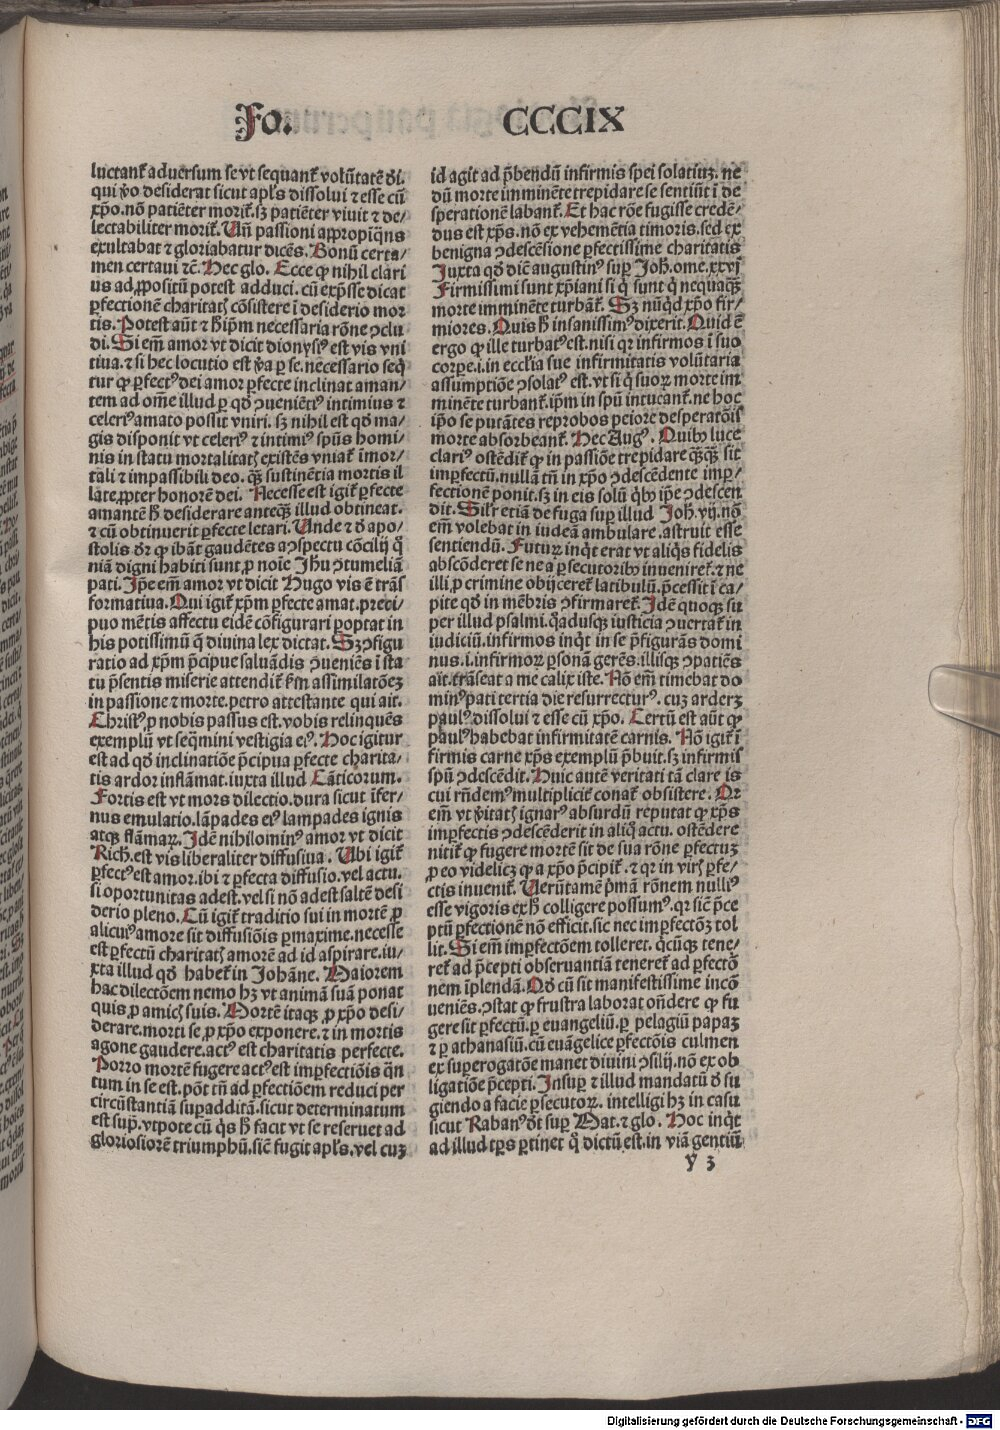 Fo. CCCIX
luctant̄ adversum se vt sequant̄ volūtatē di.
qui ṽo desiderat sicut apl̄s dissolui ⁊ esse cū
xp̄o. nō patiēter morit̄. sꝫ patiēter viuit ⁊ de/
lectabiliter morit̄. Un̄ passioni appropiq̄ns
exultabat ⁊ gloriabatur dicēs. Bonū certa/
men certaui ⁊c̄. Hec glo. Ecce ꝙ nihil clari
us ad ꝓpositū potest adduci. cū exp̄sse dicat
ꝑfectionē charitatꝭ cōsistere ī desiderio mor
tis. Potest aūt ⁊ h̄ ip̄m necessaria rōne ɔclu
di. Si em̄ amor vt dicit dionysiꝰ est vis vni
tiua. ⁊ si hec locutio est ṽa ꝑ se. necessario seq̄
tur ꝙ ꝑfectꝰ dei amor ꝑfecte inclinat aman/
tem ad om̄e illud ꝑ qd̄ ɔueniētiꝰ intimius ⁊
celeriꝰ amato possit vniri. sꝫ nihil est qd̄ ma/
gis disponit vt celeriꝰ ⁊ intimiꝰ spūs homi/
nis in statu mortalitatꝭ existēs vniat̄ īmor/
tali ⁊ impassibili deo. qꝫ̄ sustinētia mortis il
late ꝓpter honorē dei. Necesse est igit̄ ꝑfecte
amantē h̄ desiderare anteqꝫ̄ illud obtineat.
⁊ cū obtinuerit ꝑfecte letari. Unde ⁊ d̄ apo/
stolis dr̄ ꝙ ibāt gaudētes a ɔspectu cōcilij q̄
niā digni habiti sunt ꝓ noīe Jhū ɔtumeliā
pati. Ip̄e em̄ amor vt dicit Hugo vis ē trās
formatiua. Qui igit̄ xp̄m ꝑfecte amat. preci/
puo mētis affectu eidē cōfigurari ꝑoptat in
his potissimū q̄ diuina lex dictat. Sꝫ ɔfigu
ratio ad xp̄m p̄cipue saluādis ɔueniēs ī sta
tu p̄sentis miserie attendit̄ km̄ assimilatōeꝫ
in passione ⁊ morte. petro attestante qui ait.
Christꝰ ꝓ nobis passus est. vobis relinquēs
exemplū vt seq̄mini vestigia eiꝰ. Hoc igitur
est ad qd̄ inclinatiōe p̄cipua ꝑfecte charita/
tis ardoꝛ inflāmat. iuxta illud Cāticorum.
Fortis est vt mors dilectio. dura sicut īfer/
nus emulatio. lāpades eiꝰ lampades ignis
atqꝫ flāmaꝝ. Idē nihilominꝰ amor vt dicit
Rich. est vis liberaliter diffusiua. Ubi igit̄
ꝑfectꝰ est amor. ibi ⁊ ꝑfecta diffusio. vel actu.
si oportunitas adest. vel si nō adest saltē desi
derio pleno. Cū igit̄ traditio sui in mortē ꝓ
alicuiꝰ amore sit diffusiōis ꝑmaxime. necesse
est ꝑfectū charitatꝭ amorē ad id aspirare. iu/
xta illud qd̄ habet̄ in Johāne. Maiorem
hac dilectōem nemo hꝫ vt animā suā ponat
quis ꝓ amicꝭ suis. Mortē itaqꝫ ꝓ xp̄o desi/
derare. morti se ꝓ xp̄o exponere. ⁊ in mortis
agone gaudere. actꝰ est charitatis perfecte.
Porro mortē fugere actꝰ est imꝑfectiōis q̄n
tum in se est. pōt tn̄ ad ꝑfectiōem reduci per
circūstantiā suꝑadditā. sicut determinatum
est suꝑ. vtpote cū q̄s h̄ facit vt se reseruet ad
gloriosiorē triumphū. sic̄ fugit apl̄s. vel cuꝫ
id agit ad p̄bendū infirmis spei solatiuꝫ. ne
dū morte imminēte trepidare se sentiūt ī de
sperationē labant̄. Et hac rōe fugisse credē/
dus est xp̄s. nō ex vehemētia timoris. sed ex
benigna ɔdescēsione ꝑfectissime charitatis
Juxta qd̄ diē augustinꝰ suꝑ Joh̄. ome. xxvj
Firmissimi sunt xp̄iani si q̄ sunt q̄ nequaqꝫ̄
morte imminēte turbāt̄. Sꝫ nūqd̄ xp̄o fir/
miores. Quis h̄ insanissimꝰ dixerit. Quid ē
ergo ꝙ ille turbatꝰ est. nisi qꝛ infirmos ī suo
corꝑe. i. in eccl̄ia sue infirmitatis volūtaria
assumptiōe ɔsolatꝰ est. vt si q̄ suoꝝ morte im
minēte turbant̄. ip̄m in spū intueant̄. ne hoc
ip̄o se putātes reprobos peiore desperatōīs
morte absorbeant̄. Hec Augꝰ. Quibꝰ luce
clariꝰ ostēdit̄ ꝙ in passiōe trepidare qꝫ̄qꝫ̄ sit
imꝑfectū. nullā tn̄ in xp̄o ɔdescēdente imꝑ/
fectionē ponit. sꝫ in eis solū qb̄ꝰ ip̄e ɔdescen
dit. Sil̄r etiā de fuga suꝑ illud Joh̄. vij. nō
em̄ volebat in iudeā ambulare. astruit esse
sentiendū. Futurꝝ inq̄t erat vt aliq̄s fidelis
abscōderet se ne a ꝑsecutoribꝰ inueniret̄. ⁊ ne
illi ꝓ crimine obijceret̄ latibulū. p̄cessit ī ca/
pite qd̄ in mēbris ɔfirmaret̄. Idē quoqꝫ su
per illud psalmi. q̄adusqꝫ iusticia ɔuertat̄ in
iudiciū. infirmos inq̄t in se p̄figurās domi
nus. i. infirmoꝝ ꝑsonā gerēs. illisqꝫ ɔpatiēs
ait. trāseat a me calix iste. Nō em̄ timebat do
minꝰ pati tertia die resurrecturꝰ. cuꝫ arderꝫ
paulꝰ dissolui ⁊ esse cū xp̄o. Certū est aūt ꝙ
paulꝰ habebat infirmitatē carnis. Nō igit̄ ī
firmis carne xp̄s exemplū p̄buit. sꝫ infirmis
spū ɔdescēdit. Huic autē veritati tā clare is
cui rn̄demꝰ multiplicit̄ conat̄ obsistere. Qꝛ
em̄ vt ṽitatꝭ ignarꝰ absurdū reputat ꝙ xp̄s
imꝑfectis ɔdescēderit in aliq̄ actu. ostēdere
nitit̄ ꝙ fugere mortē sit de sua rōne ꝑfectuꝫ
ꝓ eo videlicꝫ ꝙ a xp̄o p̄cipit̄. ⁊ qꝛ in virꝭ ꝑfe/
ctis inuenit̄. Uerūtamē p̄mā rōnem nulliꝰ
esse vigoris ex h̄ colligere possumꝰ. qꝛ sic̄ p̄ce
ptū ꝑfectionē nō efficit. sic nec imꝑfectōꝫ tol
lit. Si em̄ imꝑfectōem tolleret. q̄cūqꝫ tene/
ret̄ ad p̄cepti obseruantiā teneret̄ ad ꝑfectō
nem īplendā. Qd̄ cū sit manifestissime incō
ueniēs. ɔstat ꝙ frustra laborat on̄dere ꝙ fu
gere sit ꝑfectū. ꝑ euangeliū. ꝑ pelagiū papaꝫ
⁊ ꝑ athanasiū. cū euāgelice ꝑfectōis culmen
ex suꝑerogatōe manet diuini ɔsilij. nō ex ob
ligatiōe p̄cepti. Insuꝑ ⁊ illud mandatū d̄ fu
giendo a facie ꝑsecutoꝝ. intelligi hꝫ in casu
sicut Rabanꝰ dt̄ suꝑ Mat. ⁊ glo. Hoc inq̄t
ad illud tp̄s ꝑtinet q̄ dictū est. in viā gentiū
y 3
Digitalisierung gefördert durch die Deutsche Forschungsgemeinschaft - DFG